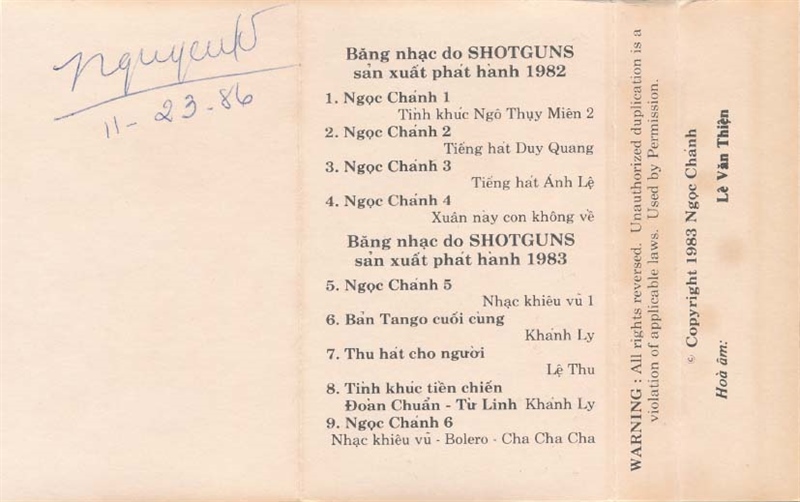 11-23-86
Băng nhạc do SHOTGUNS
sản xuất phát hành 1982
1. Ngọc Chánh 1
Tình khúc Ngô Thụy Miên 2
2. Ngọc Chánh 2
Tiếng hát Duy Quang
3. Ngọc Chánh 3
Tiếng hát Ánh Lệ
4. Ngọc Chánh 4
Xuân này con không về
Băng nhạc do SHOTGUNS
sản xuất phát hành 1983
5. Ngọc Chánh 5
Nhạc khiêu vũ 1
6. Bản Tango cuối cùng
Khánh Ly
7. Thu hát cho người
Lệ Thu
8. Tình khúc tiền chiến
Đoàn Chuẩn - Từ Linh Khánh Ly
9. Ngọc Chánh 6
Nhạc khiêu vũ - Bolero - Cha Cha Cha
WARNING : All rights reversed. Unauthorized duplication is a
violation of applicable laws. Used by Permission.
© Copyright 1983 Ngọc Chánh
Hoà âm: Lê Văn Thiện